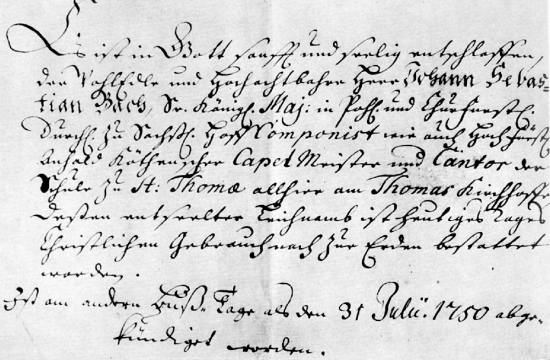 Es ist in Gott sanfft und seelig entschlaffen,
der WohlEdle und Hochachtbahre Herr Johann Sebas-
tian Bach, Sr. Königl. Maj: in Pohl. und Churfürstl.
Durchl. zu Sachsß. Hoff Componist wie auch Hochfürstl.
Anhalt Köthenscher Capel Meister und Cantor der
Schule zu St: Thomæ allhier am Thomas Kirchhoffe
deßen entseelter Leichnamb ist heutiges Tages
Christlichen Gebrauch nach zur Erden bestattet
worden.
Ist am andern Buß-Tage als den 31 Julii. 1750 abge-
kündiget worden.